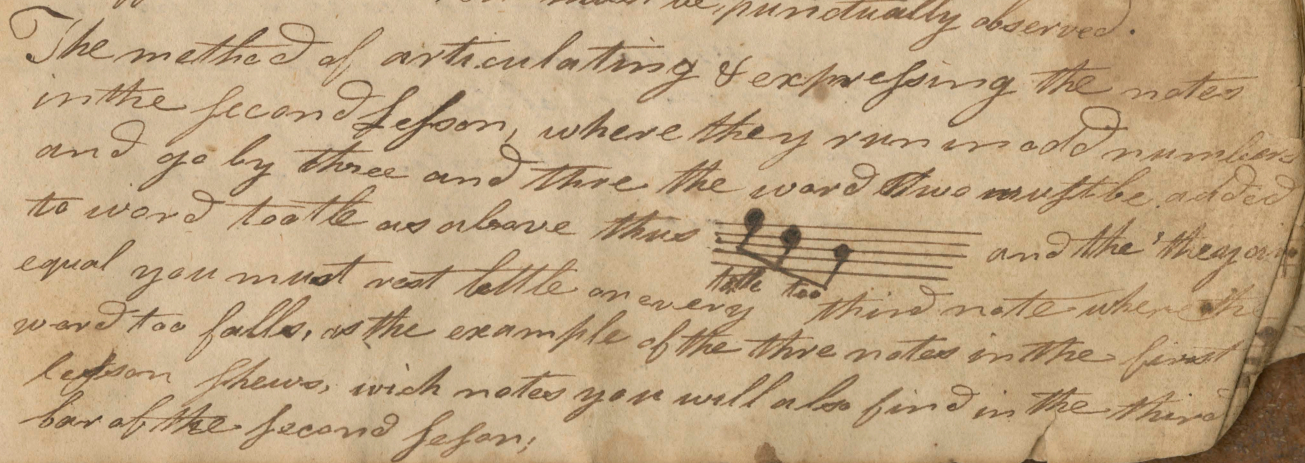 must be, punctually observed.
The method of articulating & expressing the notes
in the second Lesson, where they run in odd numbers
and go by three and thre the word two must be added
to word tootle as above thus and the' they are
tootle too
equal you must rest lettle on every third note where the
word too falls, as the example of the thre notes in the first
lesson shews, wich notes you will also find in the third
bar of the second leson;